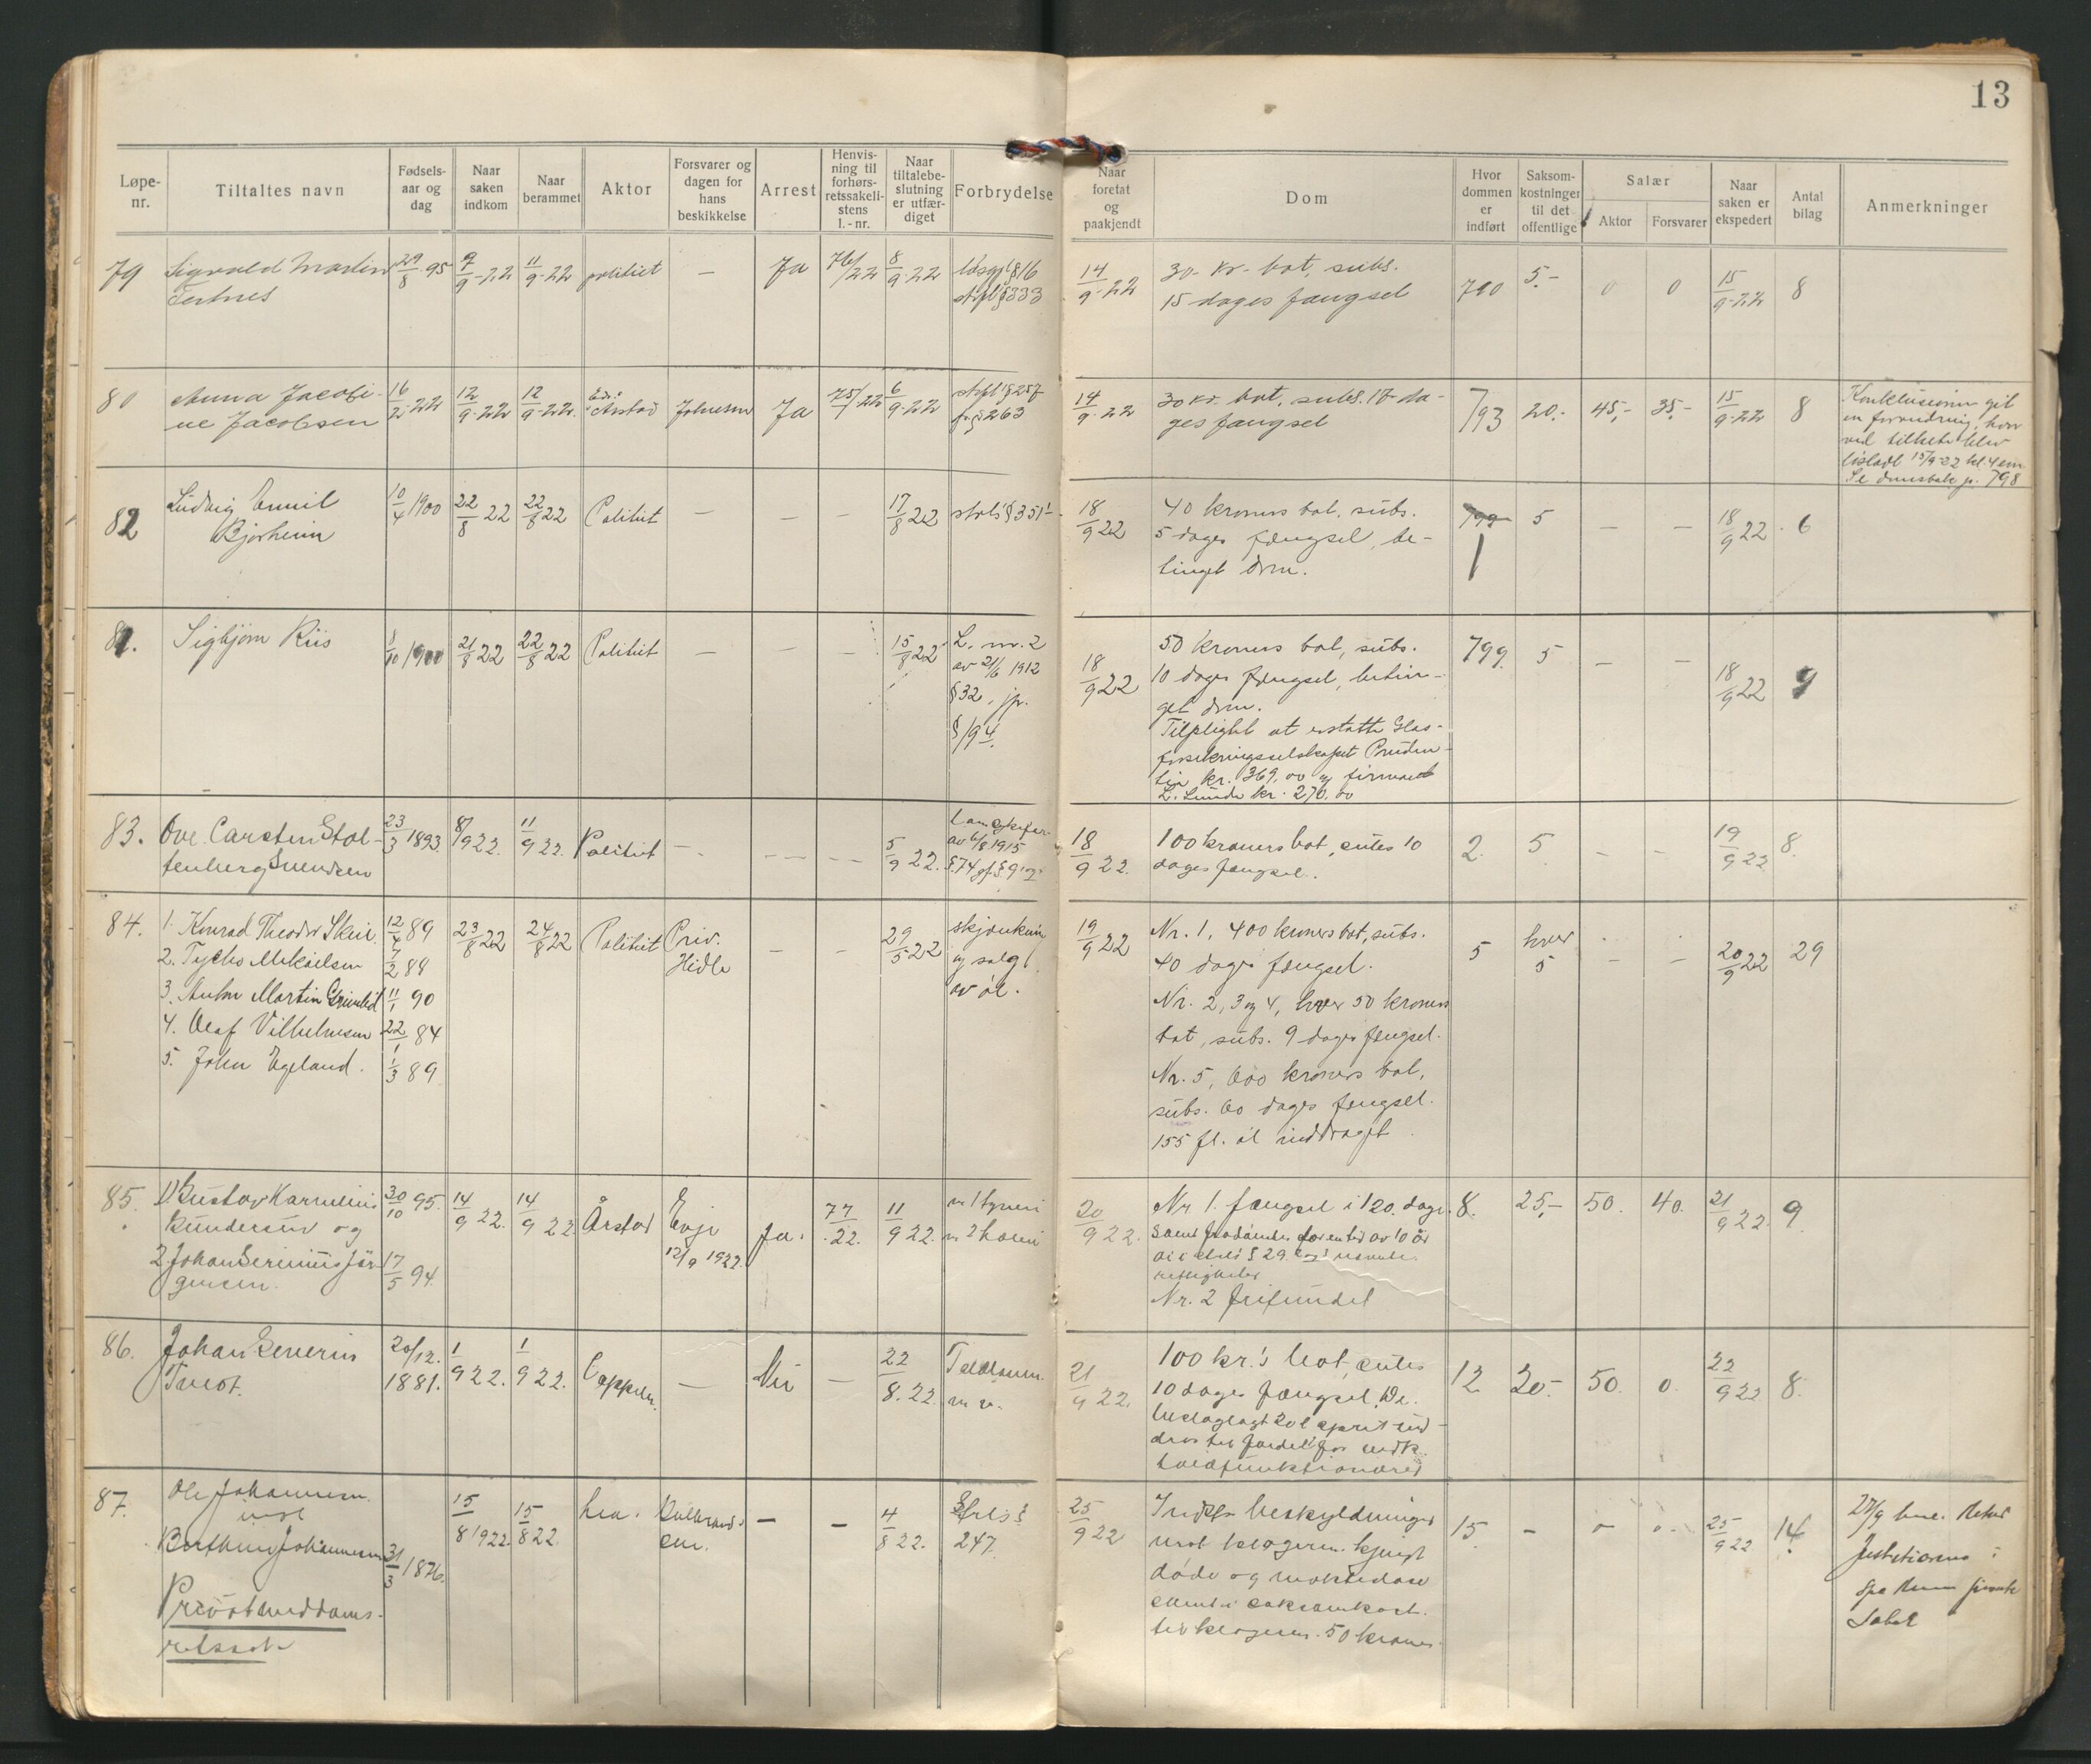 13
Løpe-
nr.
Tiltaltes navn
Fødsels-
aar og
dag
Naar
saken
indkom
Naar
berammet
Aktor
Forsvarer og
dagen for
hans
beskikkelse
Arrest
Henvis-
ning til
forhørs-
retssakeli-
stens
l.-nr.
Naar
tiltalebe-
slutning
er utfær-
diget
Forbrydelse
Naar
foretat
og
paakjendt
Dom
Hvor
dommen
er
indført
Saksom-
kostninger
til det
offentlige
Salær
Aktor
Forsvarer
Naar
saken er
ekspedert
Antal
bilag
Anmerkninger
79
Sigvald Martin
29/8 95
9/9-22
11/9-22
politiet
—
Ja
76/22
8/9-22
§16
strfl §333
14/9-22
30 kr. bot, subs.
15 dages fængsel
790
5.-
0
0
15/9-22
8
80
Anna Jacobi-
ne Jacobsen
16/2-22
12/9-22
12/9-22
Årstad
Johnsen
Ja
75/22
6/9-22
strfl §257
jfr. §263
14/9-22
30 kr. bot, subs. 17 da-
ges fængsel
793
20.-
45,-
35.-
15/9-22
8
Konklusionen git
en forandring, hvor
ved tiltalte blev
løsladt 15/9-22 kl. 4 em.
Se domsbok p. 798
82
Ludvig Emil
Bjørheim
10/4 1900
22/8 22
22/8 22
Politiet
—
—
—
17/8 22
strls §351
18/9 22
40 kroners bot, subs.
5 dages fængsel, be-
tinget dom.
799
1
5
—
—
18/9 22
6
81.
Sigbjørn Riis
/10 1900
21/8 22
22/8 22
Politiet
—
—
—
15/8 22
L. nr. 2
av 21/6 1912
§32, jfr.
§19 4.
18/9 22
50 kroners bot, subs.
10 dages fængsel, betin-
get dom.
Tilpligtet at erstatte Glas-
forsikringsselskapet Pruden-
tia kr. 369,00 og firmaet
L. Lunde kr. 270.00
799.
5
—
—
18/9 22
9
83.
Ove Carsten Stol-
tenberg Svendsen
23/3 1893.
8/9 22.
11/9 22.
Politiet
—
—
—
5/9 22.
av 6/8 1915
§74 jf. §9
18/9 22.
100 kroners bot, subs 10
dages fængsel.
2.
5
—
—
19/9 22
8.
84.
1. Konrad Theodor Skeie
12/4 89
23/8 22
24/8 22
Politiet
Priv.
Hidle
—
—
29/5 22
skjænkning
og salg
av øl.
2. Tycho Mikaelsen
7/2 84
3. Anton Martin Grimlid
11/1 90
4. Olaf Vilhelmsen
22/1 84
5. John Egeland.
1/3 89
19/9 22
Nr. 1, 400 kroners bot, subs.
40 dages fængsel.
Nr. 2, 3 og 4, hver 50 kroners
bot, subs. 9 dages fængsel.
Nr. 5, 600 kroners bot,
subs. 60 dages fængsel.
155 fl. øl inddraget
5
hver
5
—
—
20/9 22
29
85.
1) Gustav Kornelius
Gundersen og
2. Johan Severinus Jør-
gensen.
30/10 95.
17/5 94.
14/9 22.
14/9 22
Årstad
Evje
12/9 1922.
Ja.
77/22.
11/9 22.
nr 1 tyveri
nr 2 hæleri
20/9 22.
Nr 1. fængsel i 120 dage
samt fradømmes for en tid av 10 år
de i strls § 29 nævnte
rettigheter
Nr. 2 frifundet
8.
25,-
50.
40.
21/9 22.
9.
86.
Johan Severin
Tveit.
20/12.
1881.
1/9 22.
1/9 22.
Cappelen.
—
Nei
—
22/8. 22.
21/9 22.
100 kr.'s bot, subs
10 dages fængsel. De
beslaglagt 20 l sprit ind-
dras til fordel for vedk.
toldfunktionærer
12.
20.-
50.
0.
22/9 22
8.
87.
Ole Johannesen
mot
Berthine Johannesen
Privat meddoms-
retssak
31/3 1876.
15/8 1922.
15/8 22.
—
—
4/8 22.
Strls §
247.
25/9 22
beskyldninger
mot klageren kjendt
døde og maktesløse
saksomkost.
til klageren 50 kroner.
15.
-
-
0.
25/9 22
14.
27/9